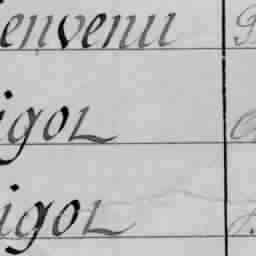 envenu
igol
igol